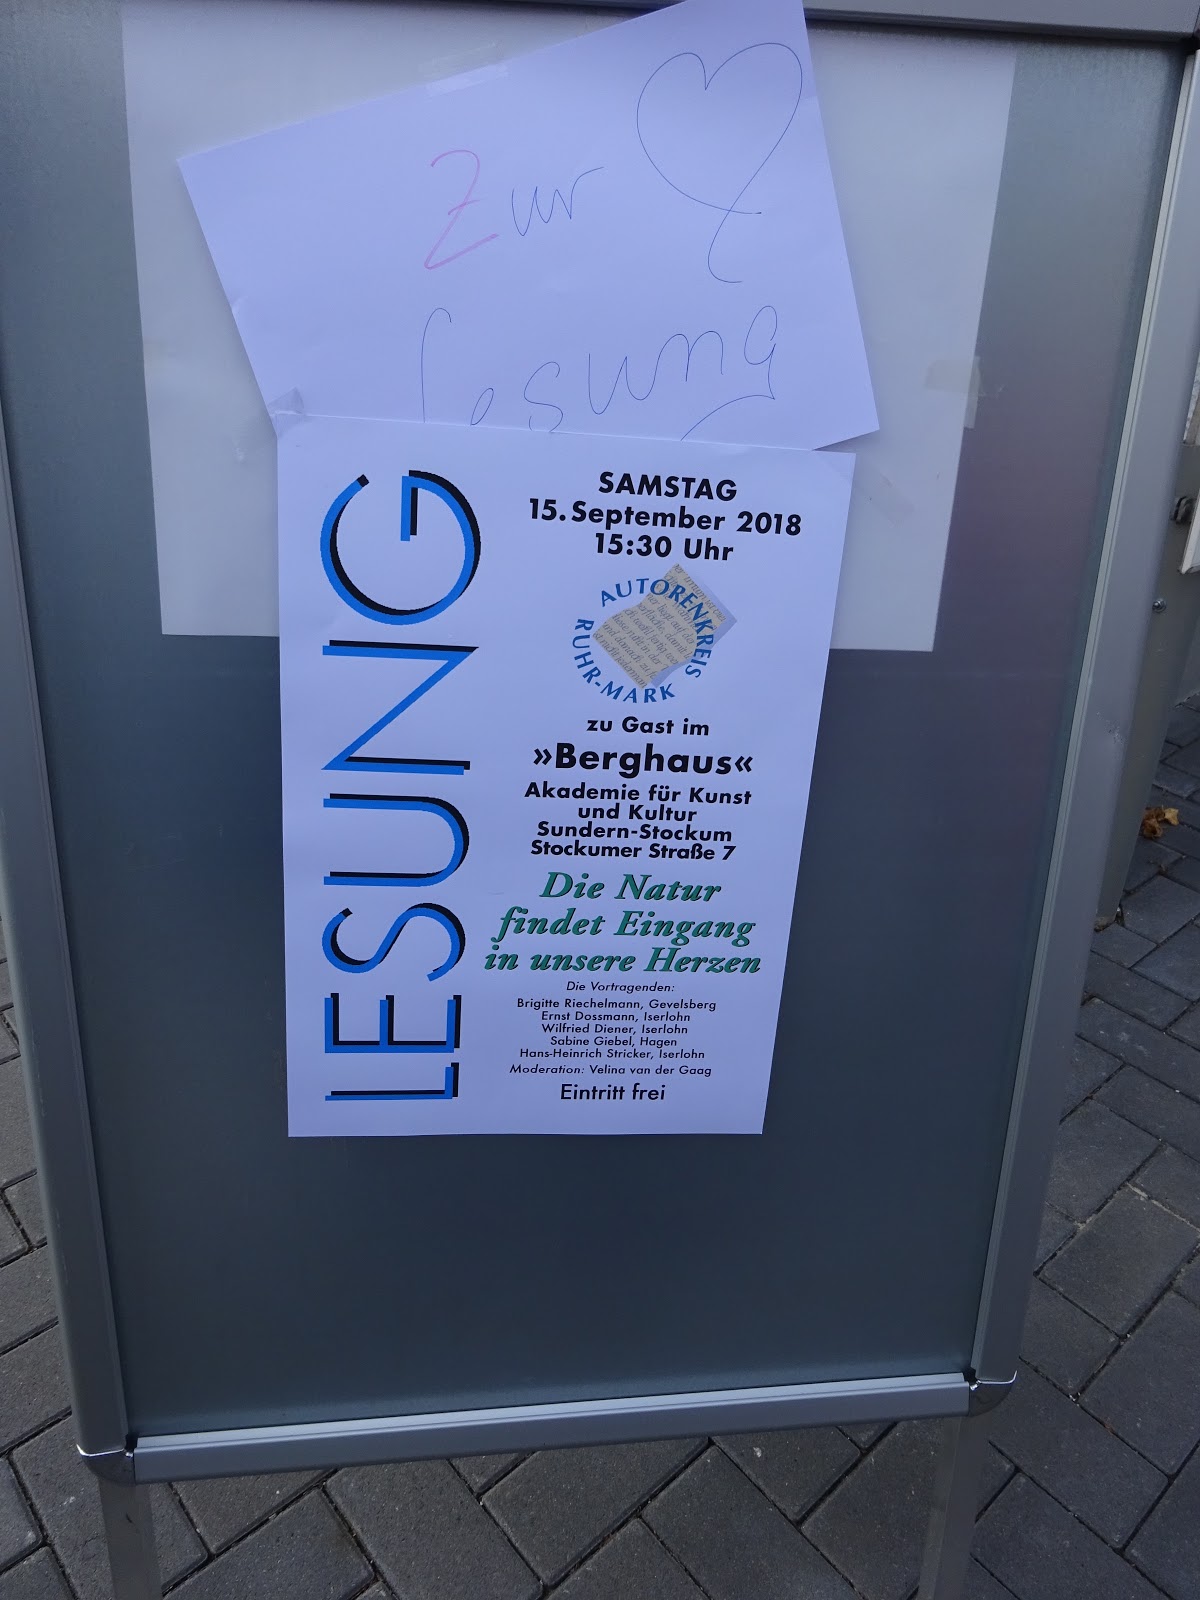 Zur
Lesung
LESUNG
SAMSTAG
15. September 2018
15:30 Uhr
AUTORENKREIS
RUHR-MARK
zu Gast im
»Berghaus«
Akademie für Kunst
und Kultur
Sundern-Stockum
Stockumer Straße 7
Die Natur
findet Eingang
in unsere Herzen
Die Vortragenden:
Brigitte Riechelmann, Gevelsberg
Ernst Dossmann, Iserlohn
Wilfried Diener, Iserlohn
Sabine Giebel, Hagen
Hans-Heinrich Stricker, Iserlohn
Moderation: Velina van der Gaag
Eintritt frei